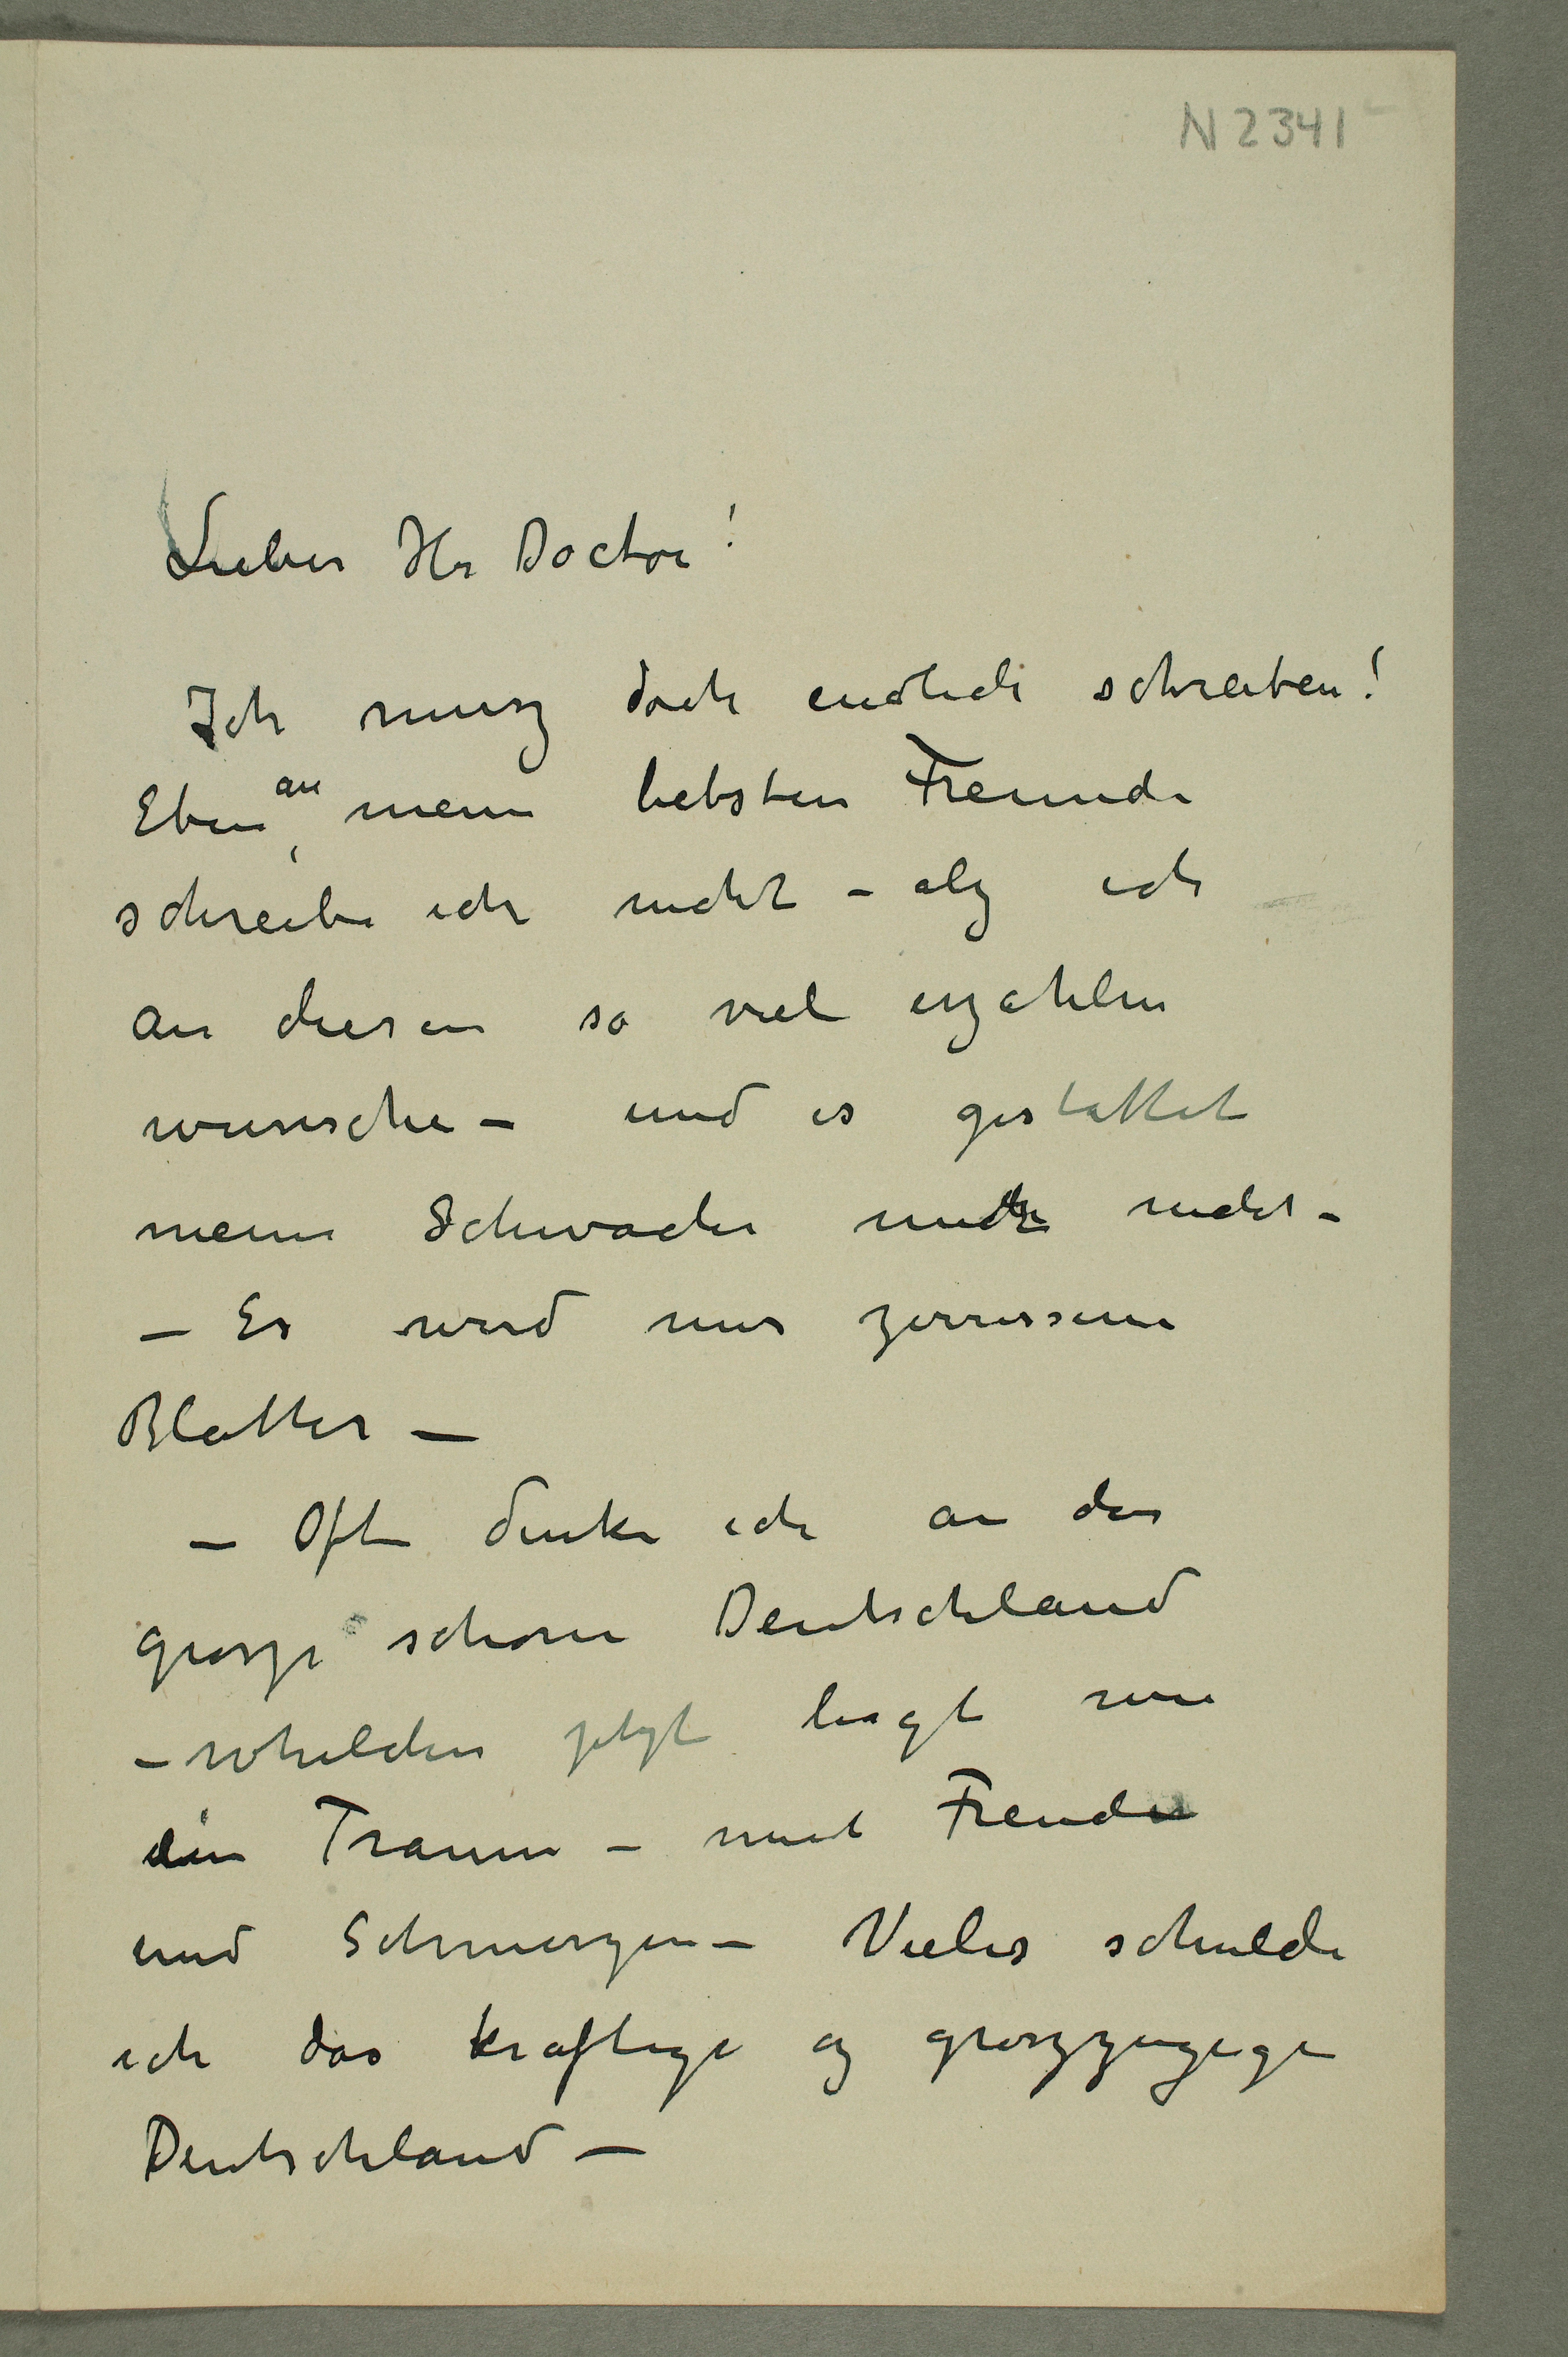 N 2341
Lieber Hr Doctor!
Ich musz doch endlich schreiben!
Eben an meine liebsten Freunde
schreibe ich nicht – alz ich
an diesen so viel erzahlen
wunsche – und es gestattet
meine Schwäche mich nicht –
– Es wird nur zerrissene
Blatter –
– Oft denke ich an das
grosze schöne Deutschland
– whelches jetzt liegt wie
ein Traum – mit Freuden
und Schmerzen – Vieles schulde
ich das kraftige og groszzugige
Deutschland –